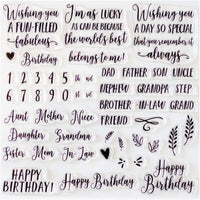 Wishing you
A FUN-FILLED
fabulous
Birthday
I'm as LUCKY
AS CAN BE BECAUSE
the world's best
belongs to me!
Wishing you
A DAY SO SPECIAL
that you remember it
always
1 2 3 4 5 th nd
6 7 8 9 0 st rd
DAD FATHER SON UNCLE
NEPHEW GRANDPA STEP
BROTHER IN-LAW GRAND
FRIEND
Aunt Mother Niece
Daughter Grandma
Sister Mom In-Law
HAPPY
BIRTHDAY!
Happy Birthday
Happy
Birthday